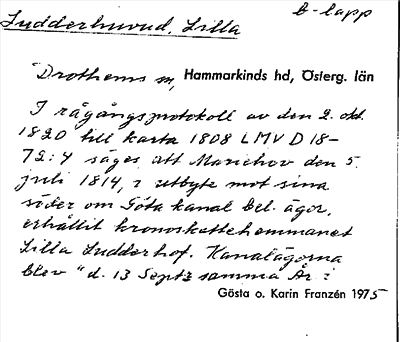 Ludderhuvud, Lilla
b-lapp
Drothems sn, Hammarkinds hd, Österg. län
I rågångsprotokoll av den 2. okt.
1820 till karta 1808 LMV D 18-
72:4 säges att Mariehov den 5.
juli 1814, i utbyte mot sina
söder om Göta kanal bel. ägor,
erhållit kronoskattehemmanet
Lilla Ludderhof. Kanalägorna
blev "d. 13 Septr samma År i
Gösta o. Karin Franzén 1975